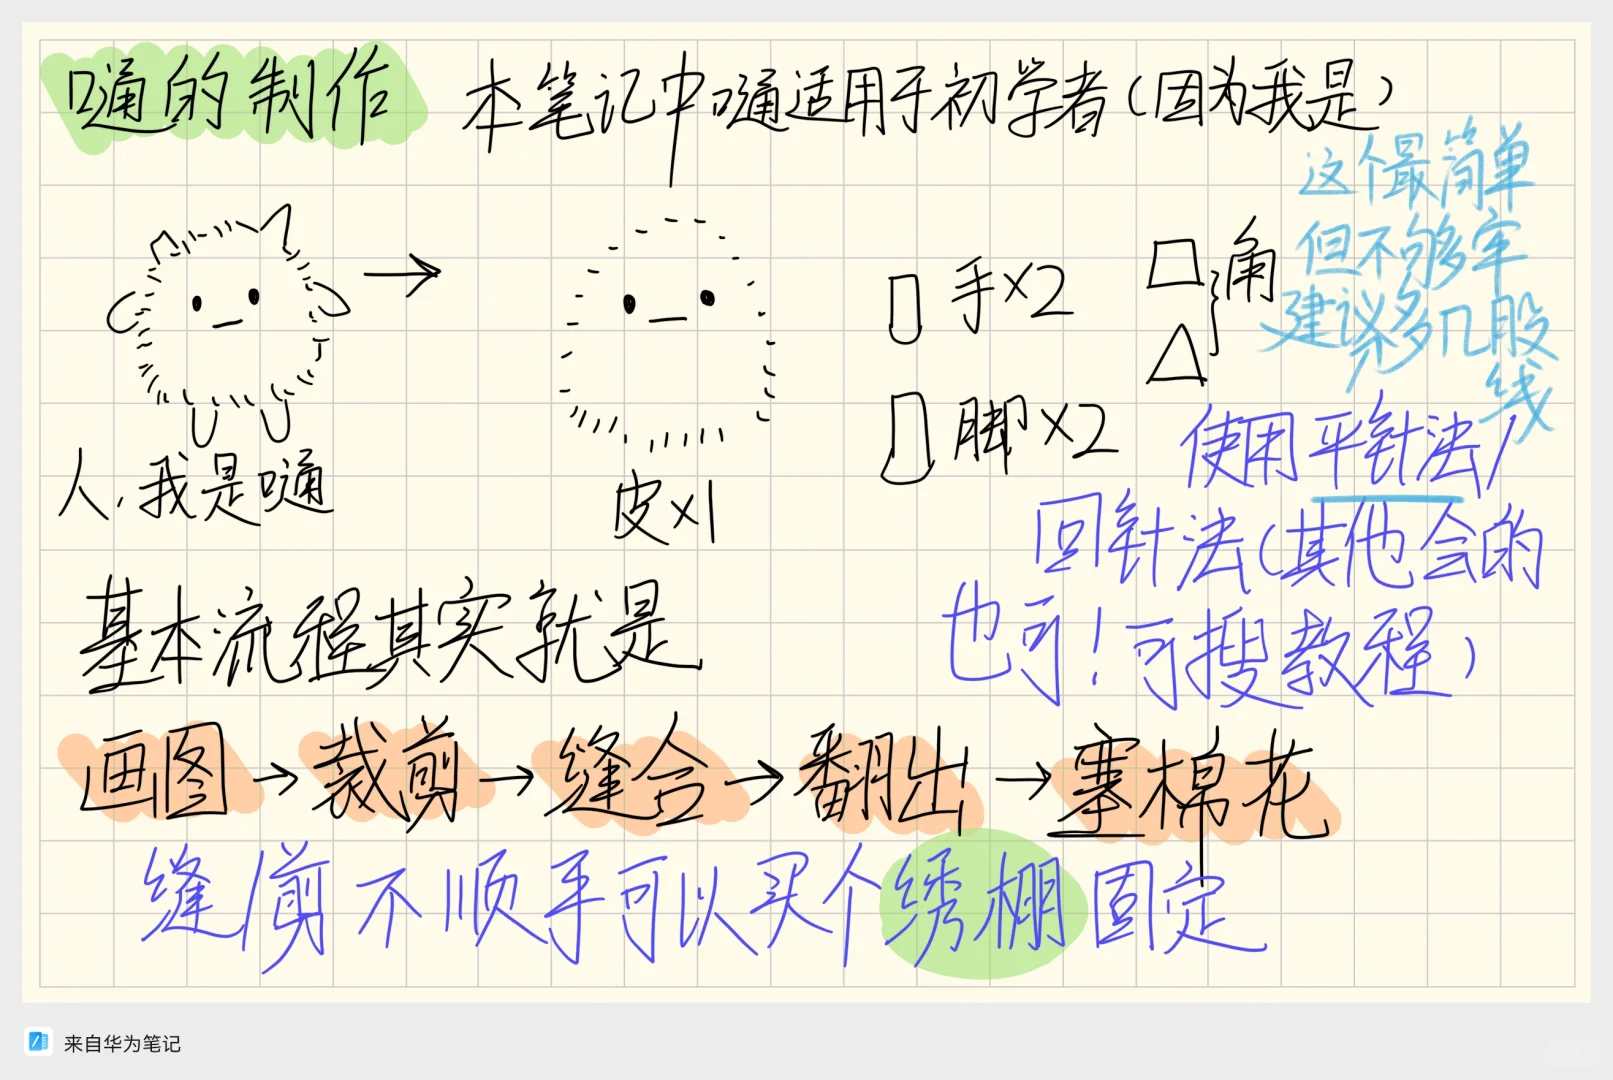 嗵的制作 本笔记中嗵适用于初学者（因为我是）
这个最简单
但不够牢
建议多几股
线
手×2
角
脚×2
人，我是嗵
皮×1
使用平针法/
回针法（其他会的
也可！可搜教程）
基本流程其实就是
画图→裁剪→缝合→翻出→塞棉花
缝/剪不顺手可以买个绣棚固定
来自华为笔记